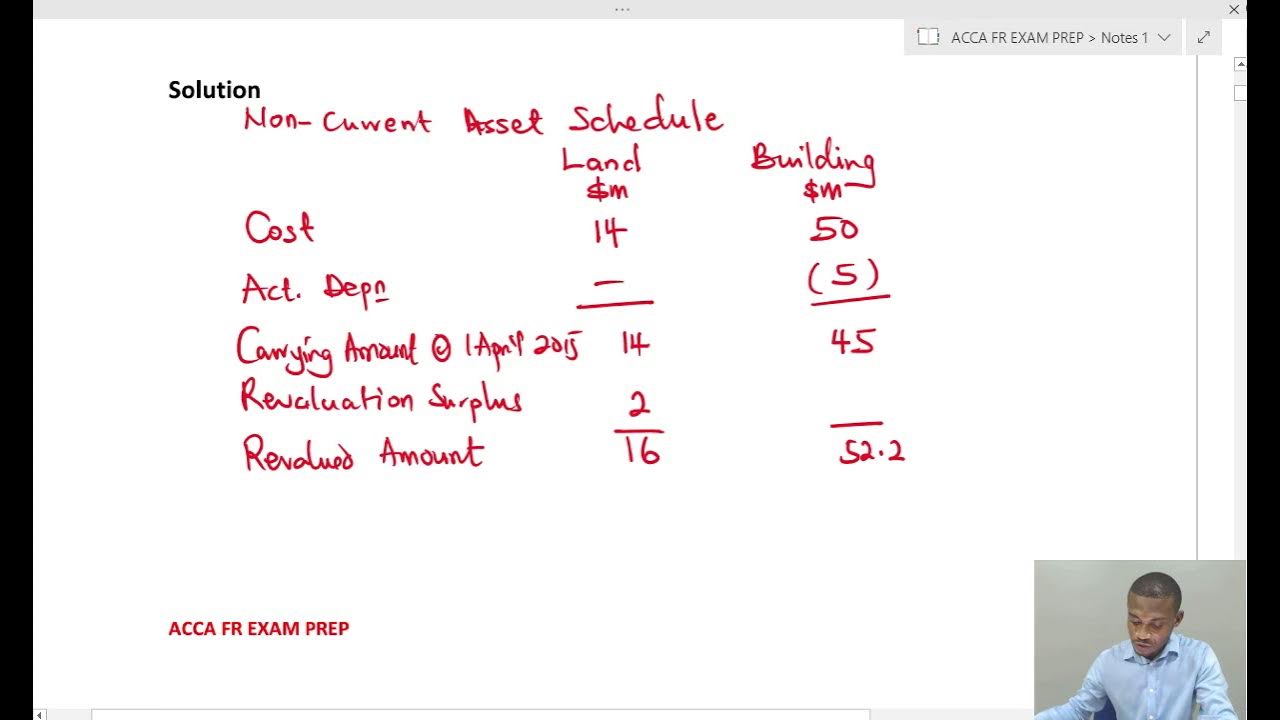 ACCA FR EXAM PREP > Notes 1
Solution
Non-Current Asset Schedule
Land Building
$m $m
Cost 14 50
Act. Depn — (5)
Carrying Amount @ 1 April 2015 14 45
Revaluation Surplus 2
Revalued Amount 16 52.2
ACCA FR EXAM PREP